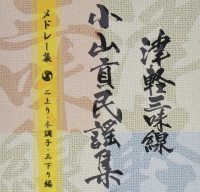 津軽三味線
小山貢民謡集
メドレー集
二上り・本調子・三下り編